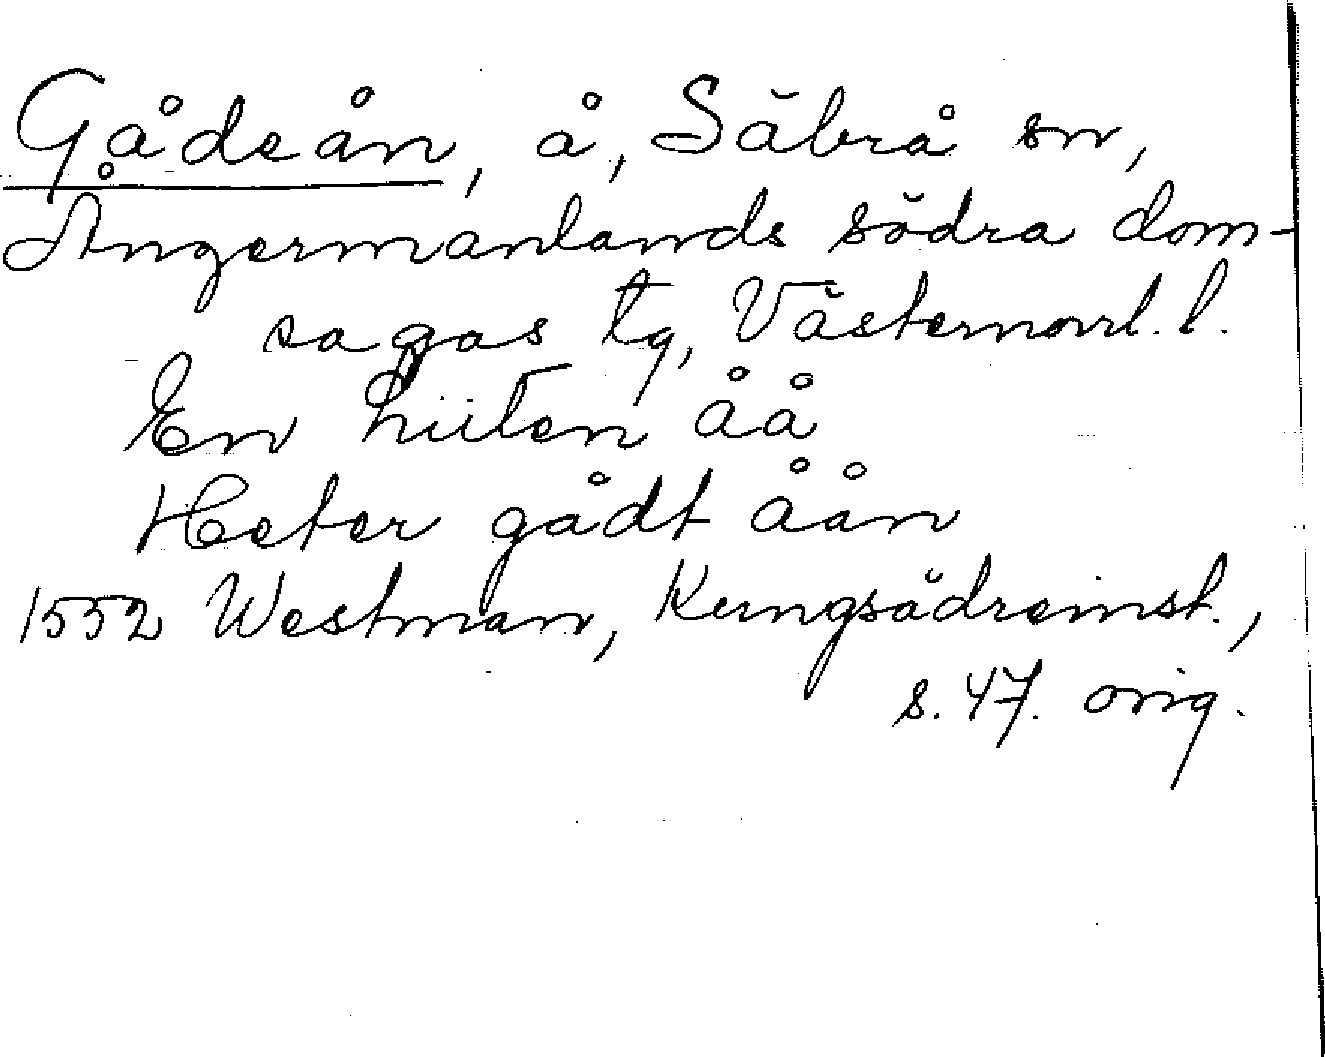 Gådeån, å, Säbrå sn,
Ångermanlands södra dom-
sagas tg, Västernorrl. l.
En liiten åå
Heter gådt åån
1552 Westman, Kungsådreinst.,
s. 47. orig.